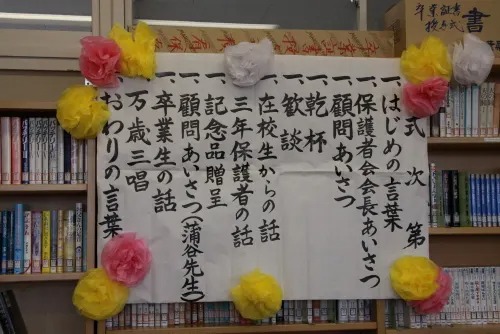 式次第
一、はじめの言葉
一、保護者会会長あいさつ
一、顧問あいさつ
一、乾杯
一、歓談
一、在校生からの話
一、三年保護者の話
一、記念品贈呈
一、顧問あいさつ(蒲谷先生)
一、卒業生の話
一、万歳三唱
一、おわりの言葉
卒業証書
授与式